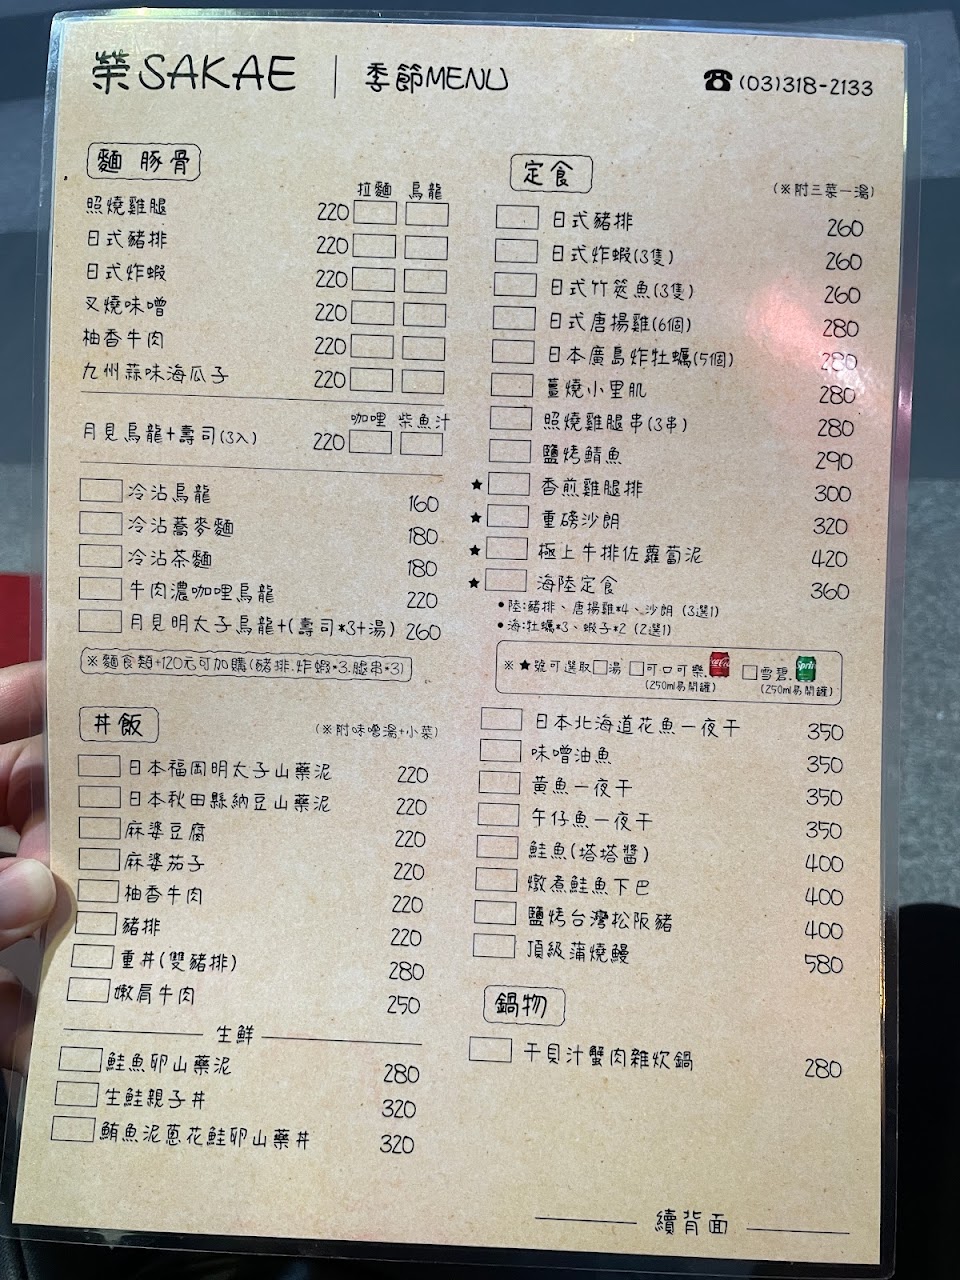 榮SAKAE | 季節MENU ☎(03)318-2133
麵 豚骨
拉麵 烏龍
照燒雞腿 220
日式豬排 220
日式炸蝦 220
叉燒味噌 220
柚香牛肉 220
九州蒜味海瓜子 220
咖哩 柴魚汁
月見烏龍+壽司(3入) 220
冷沾烏龍 160
冷沾蕎麥麵 180
冷沾茶麵 180
牛肉濃咖哩烏龍 220
月見明太子烏龍+(壽司*3+湯) 260
※麵食類+120元可加購(豬排.炸蝦*3.腿串*3)
丼飯 (※附味噌湯+小菜)
日本福岡明太子山藥泥 220
日本秋田縣納豆山藥泥 220
麻婆豆腐 220
麻婆茄子 220
柚香牛肉 220
豬排 220
重丼(雙豬排) 280
嫩肩牛肉 250
生鮮
鮭魚卵山藥泥 280
生鮭親子丼 320
鮪魚泥蔥花鮭卵山藥丼 320
定食 (※附三菜一湯)
日式豬排 260
日式炸蝦(3隻) 260
日式竹筴魚(3隻) 260
日式唐揚雞(6個) 280
日本廣島炸牡蠣(5個) 280
薑燒小里肌 280
照燒雞腿串(3串) 280
鹽烤鯖魚 290
★ 香煎雞腿排 300
★ 重磅沙朗 320
★ 極上牛排佐蘿蔔泥 420
★ 海陸定食 360
•陸:豬排、唐揚雞*4、沙朗 (3選1)
•海:牡蠣*3、蝦子*2 (2選1)
※★號可選取□湯 □可口可樂. □雪碧.
(250ml易開罐) (250ml易開罐)
日本北海道花魚一夜干 350
味噌油魚 350
黃魚一夜干 350
午仔魚一夜干 350
鮭魚(塔塔醬) 400
燉煮鮭魚下巴 400
鹽烤台灣松阪豬 400
頂級蒲燒鰻 580
鍋物
干貝汁蟹肉雜炊鍋 280
續背面